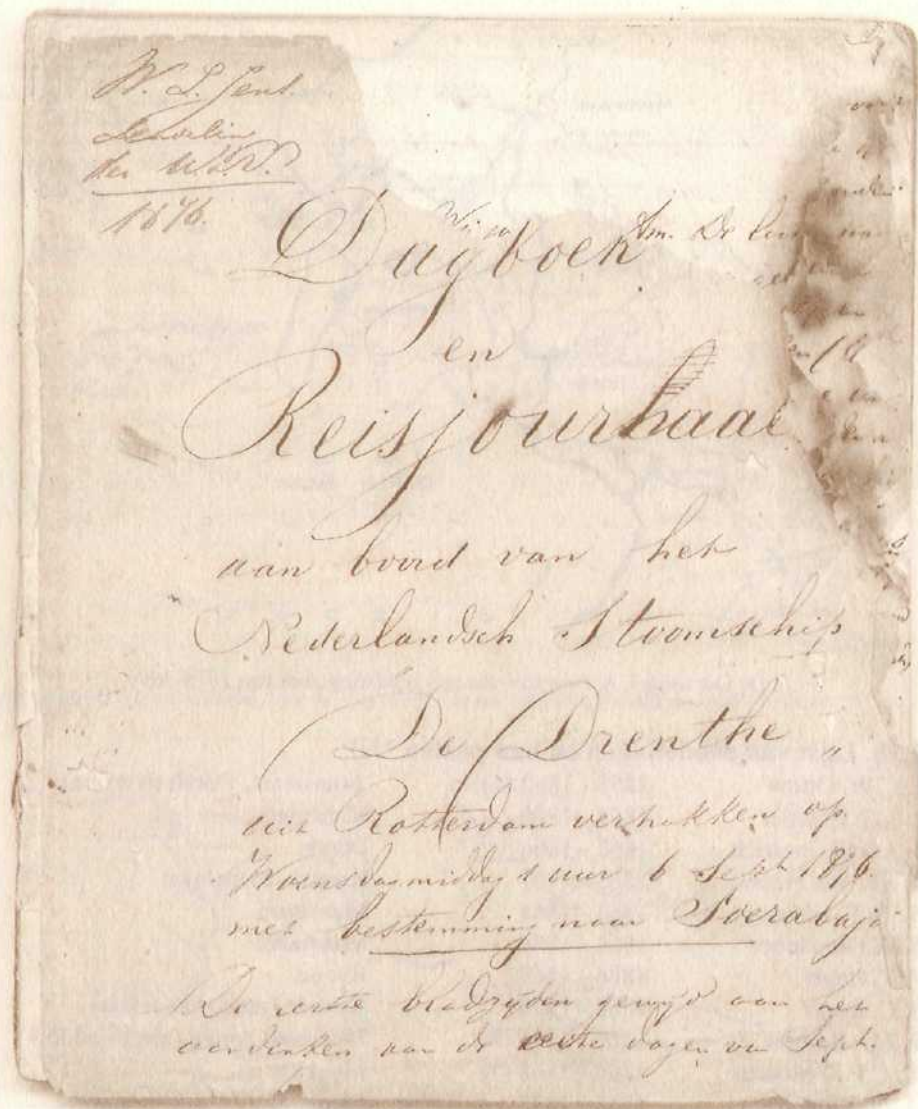 W. L. Jent.
der
1876.
Dagboek
en
Reisjournaal
aan boord van het
Nederlandsch Stoomschip
De Drenthe "
uit Rotterdam vertrokken op
Woensdagmiddag 1 uur 6 Sept 1876.
met bestemming naar Soerabaja
De eerste bladzijden gewijd aan het
aandenken aan de eerste dagen van Sept.